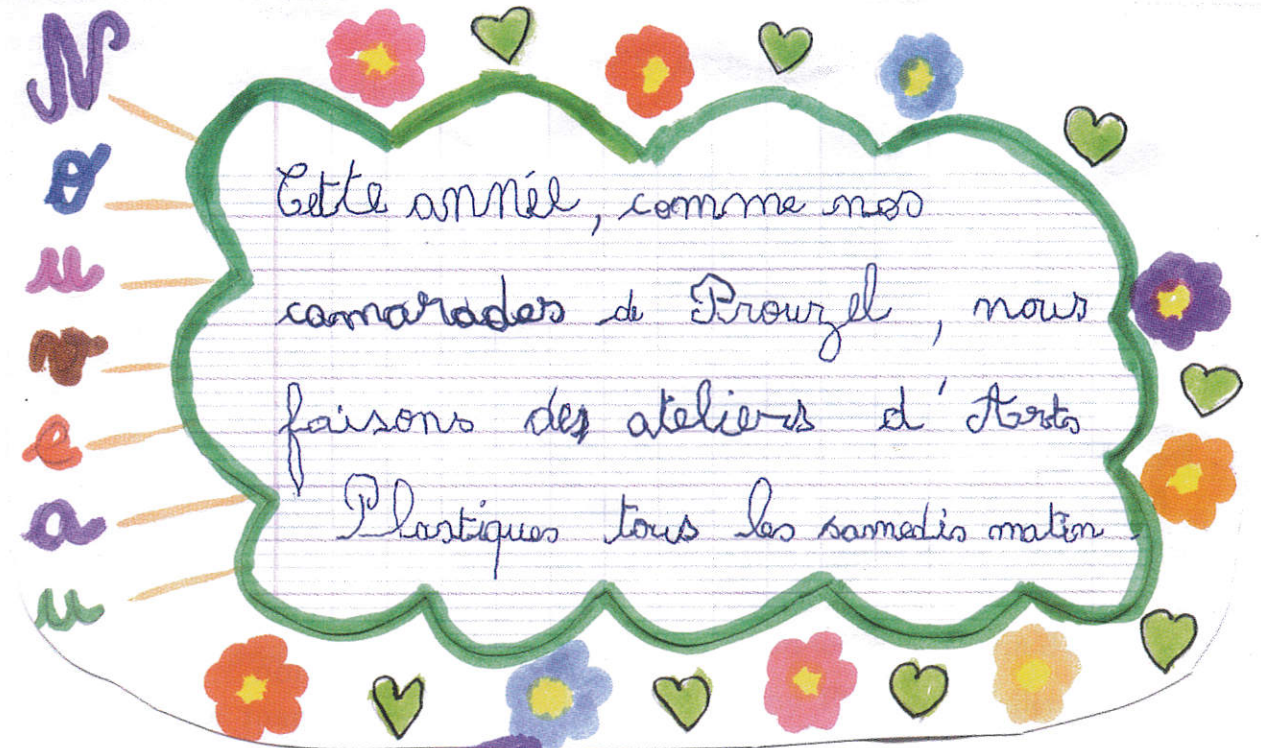 Nouveau
Cette année, comme nos
camarades de Prouzel, nous
faisons des ateliers d'Arts
Plastiques tous les samedis matin.